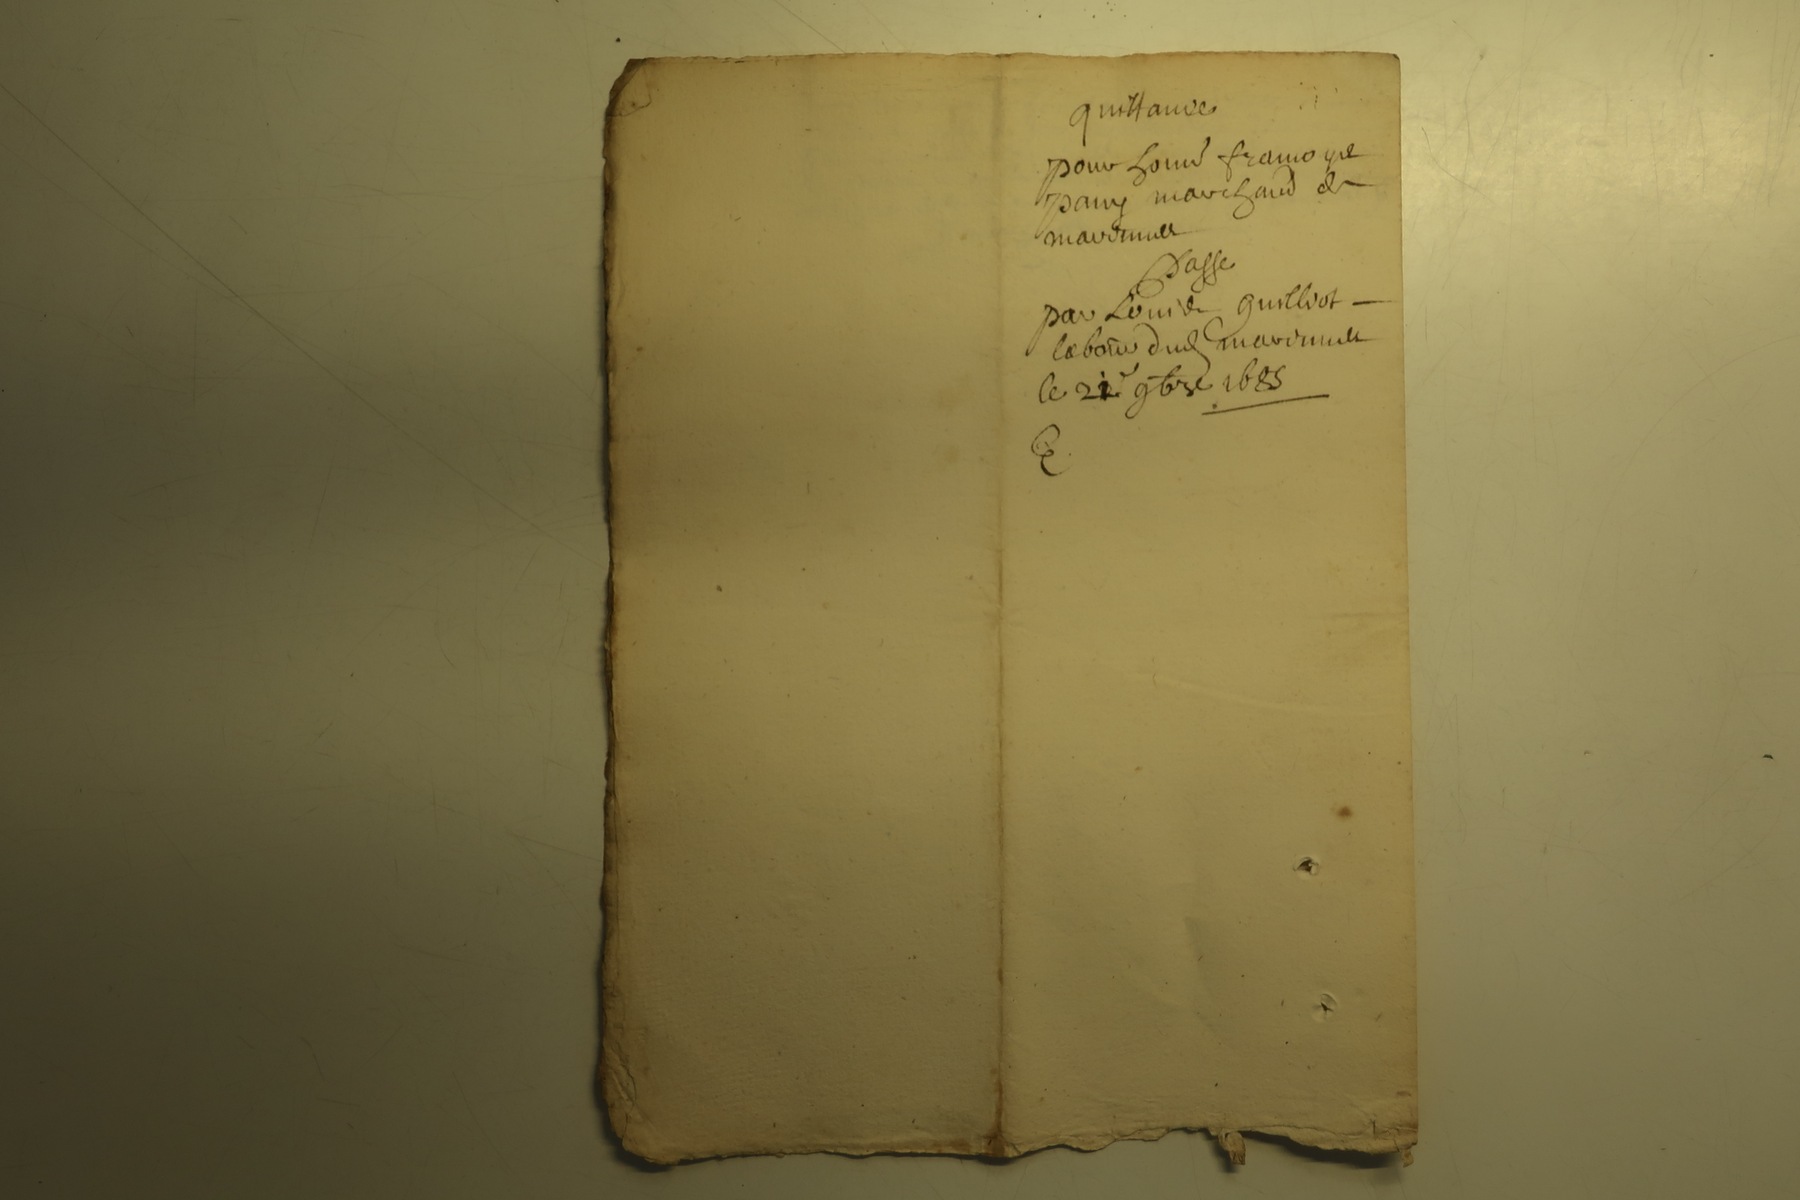 quittance
pour honně françois
pauy marchand de
marimille
Passe
par Louis guilliot
labour dud marimille
le 21e 9bre 1685